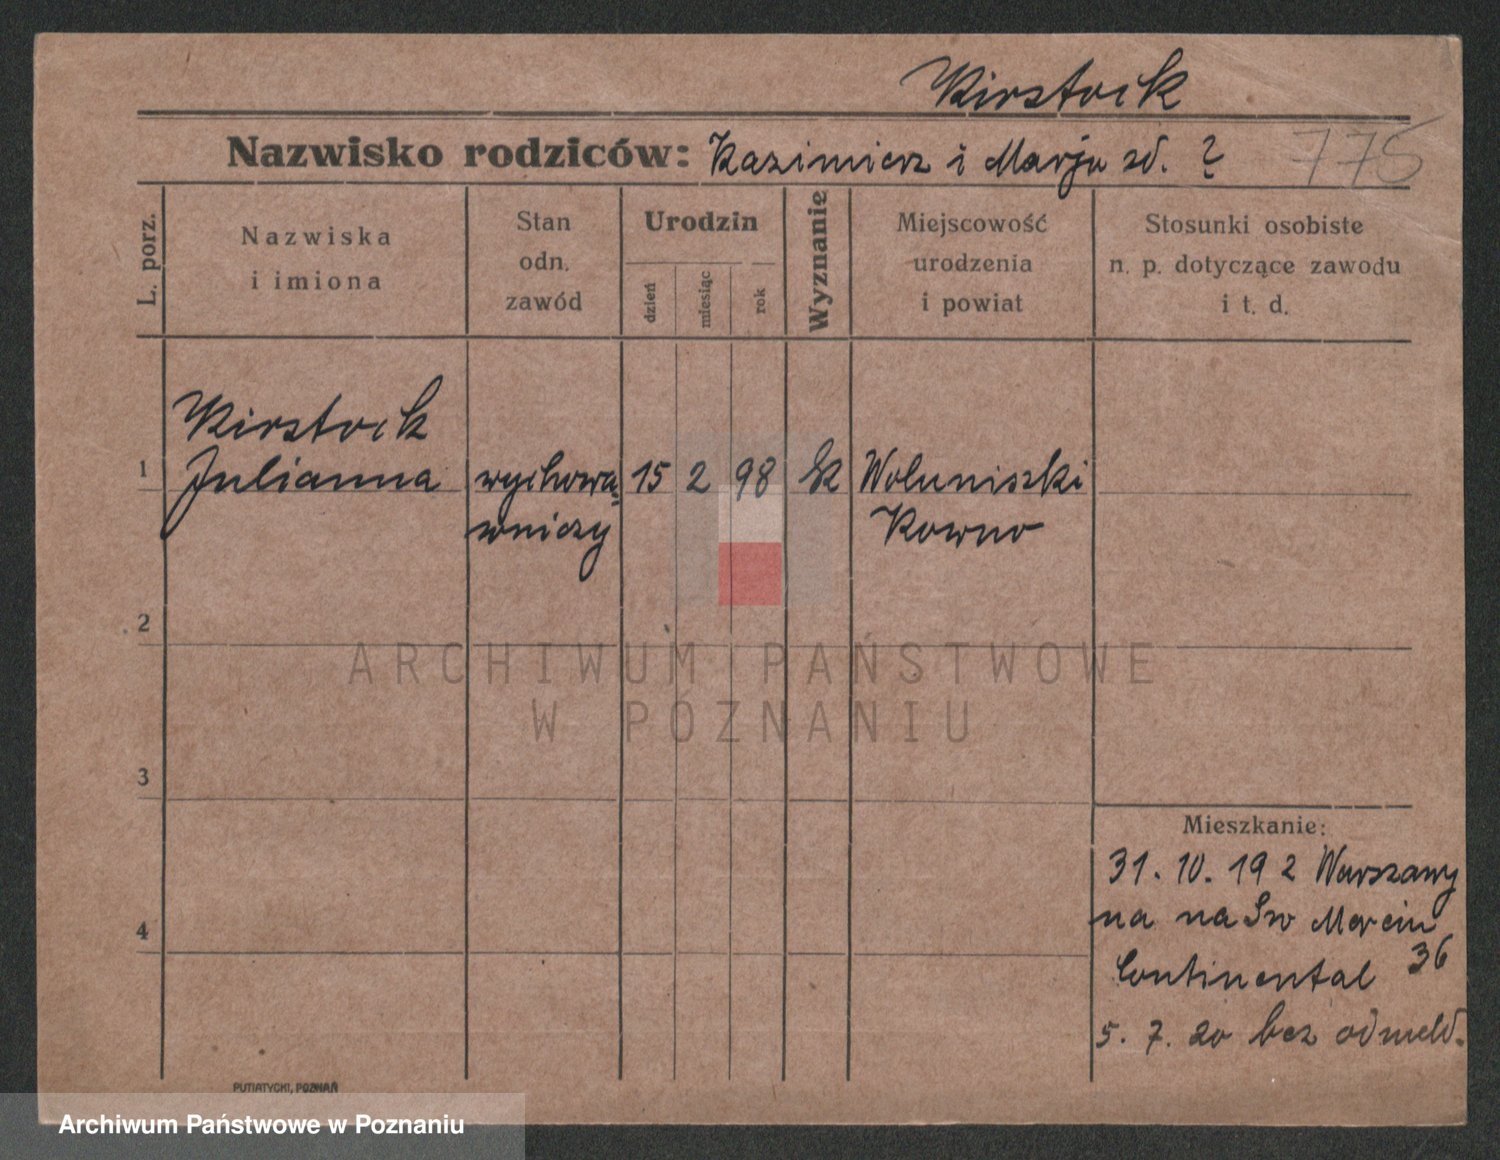 Kirstock
Nazwisko rodziców: Kazimierz i Marja zd. ?
775
L. porz.
Nazwiska
i imiona
Stan
odn.
zawód
Urodzin
dzień
miesiąc
rok
Wyznanie
Miejscowość
urodzenia
i powiat
Stosunki osobiste
n. p. dotyczące zawodu
i t. d.
Kirstock
1 Julianna wychowa= 15 2 98 Woluniszki
wniczy Kowno
2
ARCHIWUM PAŃSTWOWE
W POZNANIU
3
4
Mieszkanie:
31. 10. 19 z Warszawy
na na Św Marcin
36
Continental
5. 7. 20 bez odmeld.
PUTIATYCKI, POZNAŃ
Archiwum Państwowe w Poznaniu